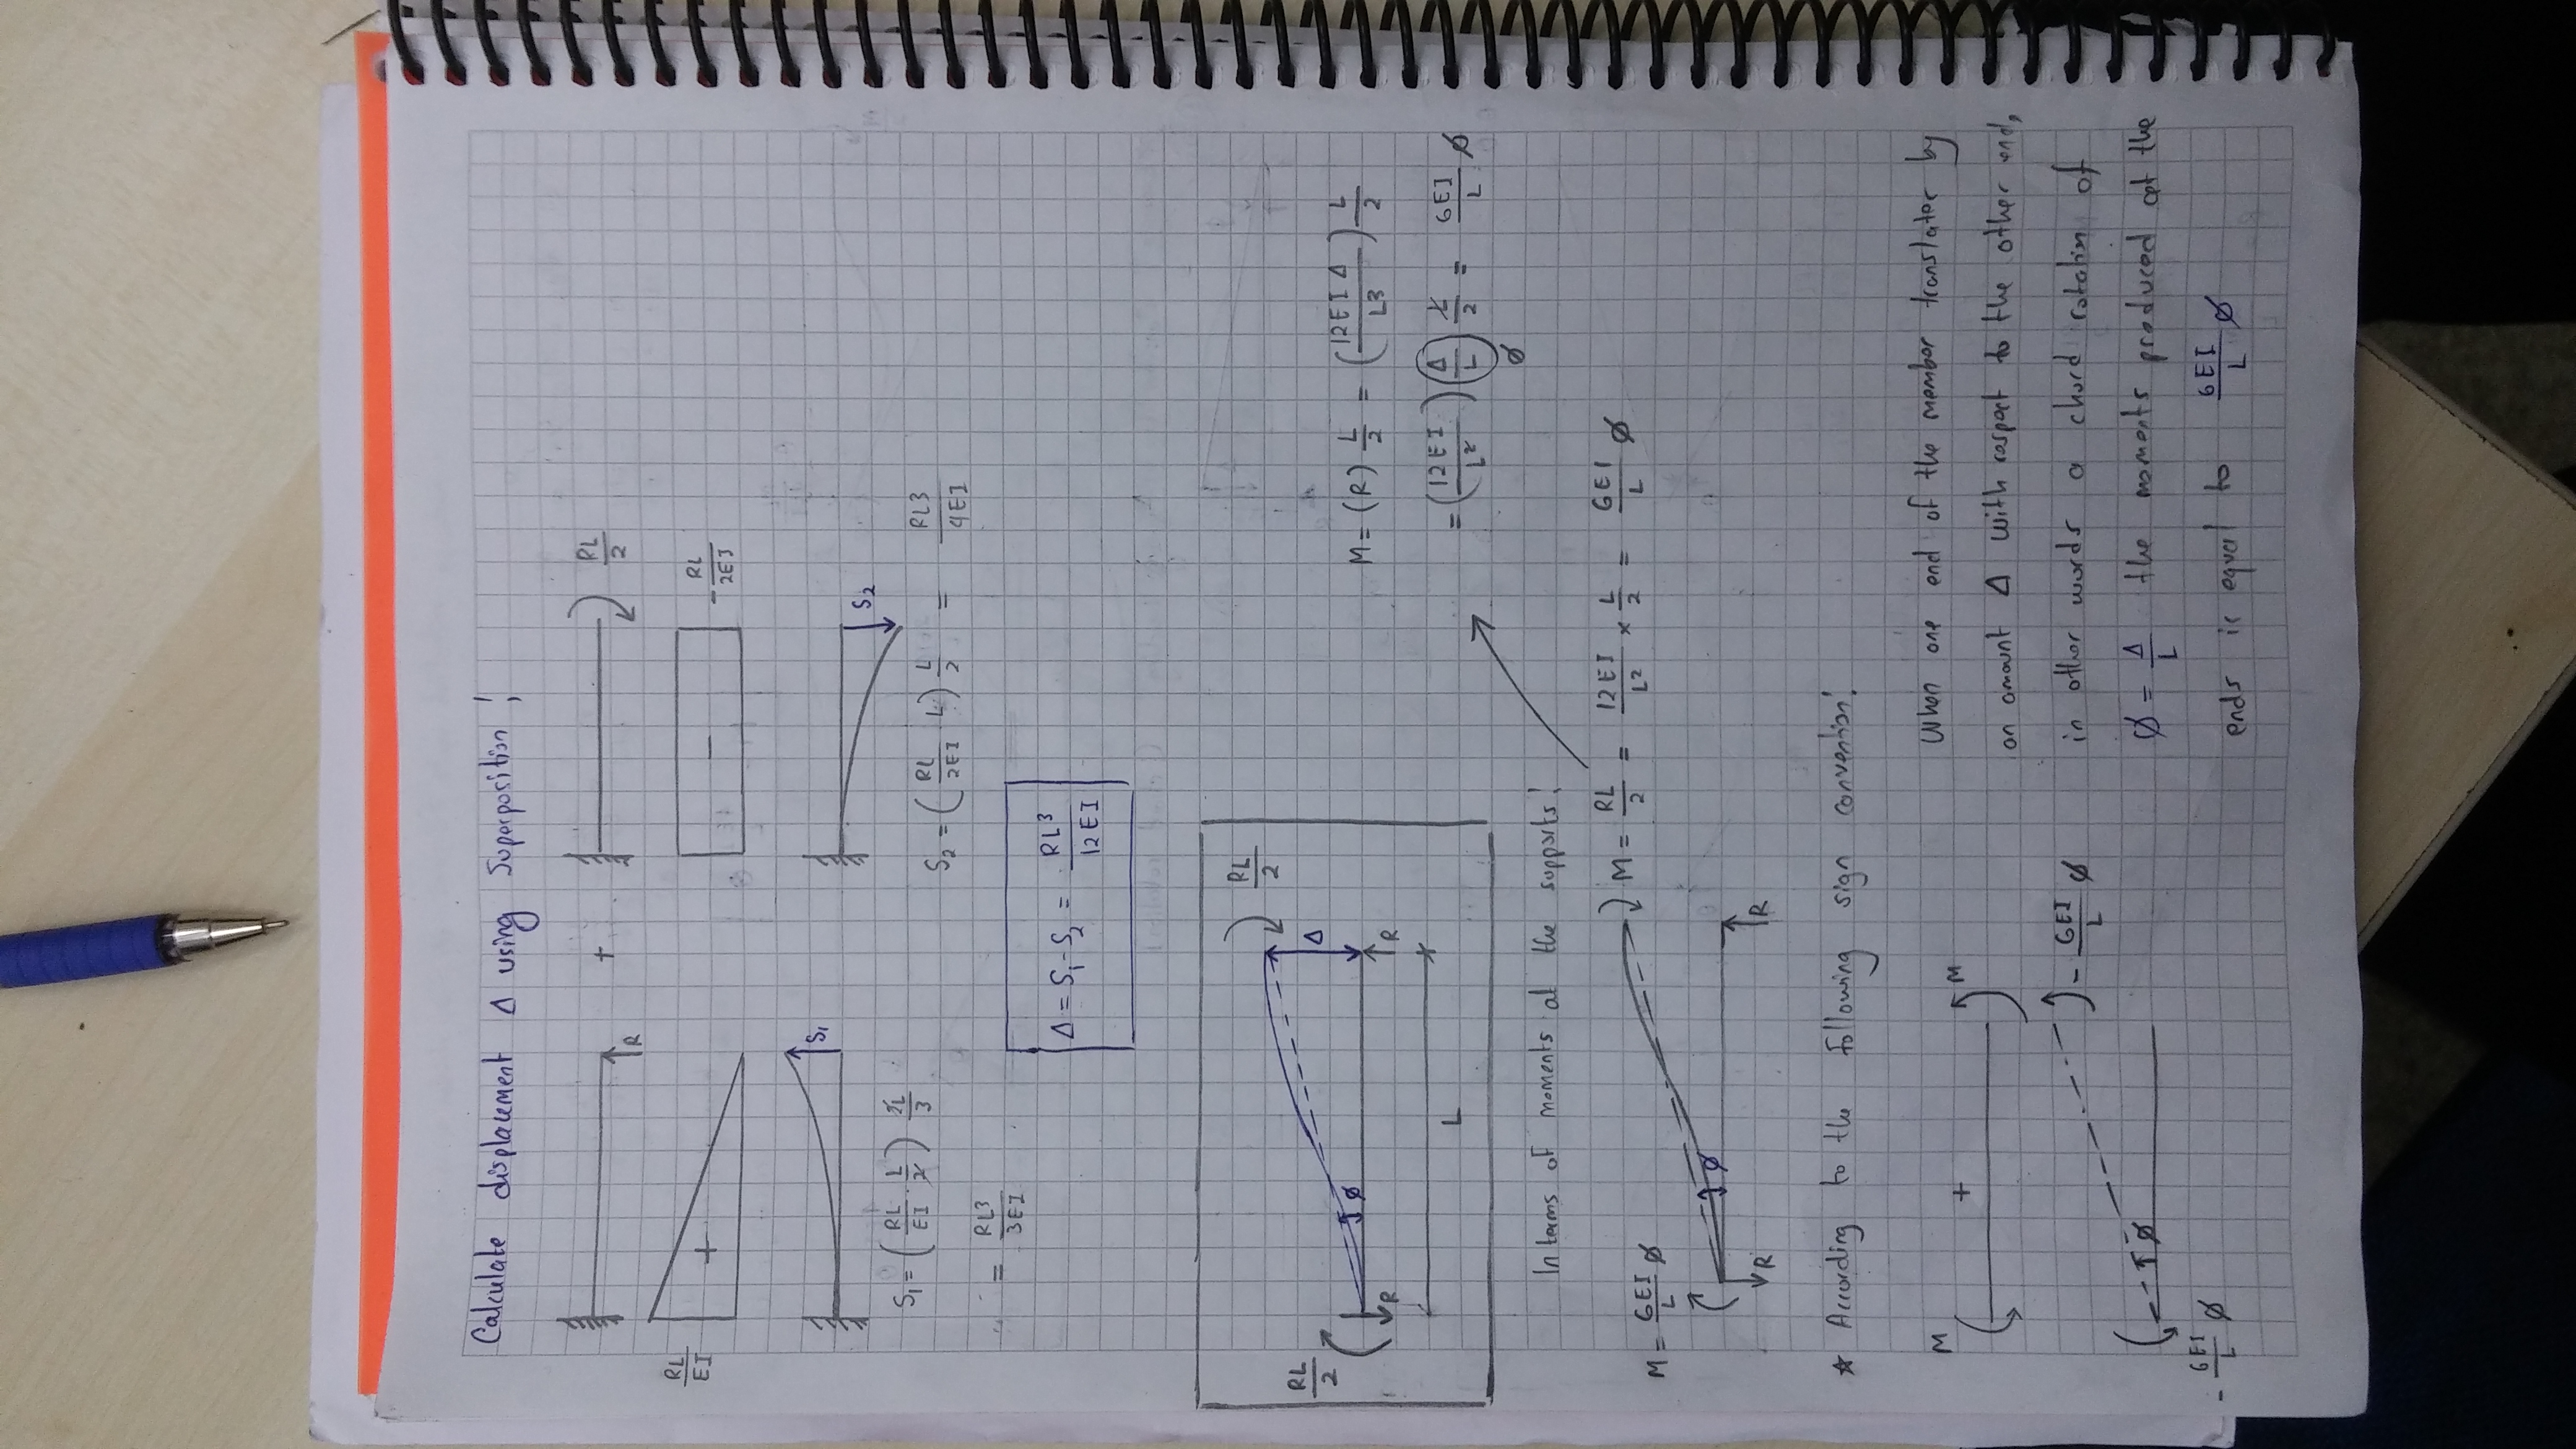 Calculate displacement Δ using Superposition!
R + RL/2
RL/EI + - -RL/2EI
S₁ S₂
S₁ = (RL/EI L/2) 2L/3 S₂ = (RL/2EI L) L/2 = RL³/4EI
" = RL³/3EI
Δ = S₁ - S₂ = RL³/12EI
RL/2 RL/2
R Ø Δ R
L
M = (R) L/2 = (12EIΔ/L³) L/2
= (12EI/L²) (Δ/L) L/2 = 6EI/L Ø
Ø
In terms of moments at the supports!
M = 6EI/L Ø M = RL/2 = 12EI/L² × L/2 = 6EI/L Ø
R Ø R
★ According to the following sign convention!
M + M
-6EI/L Ø Ø -6EI/L Ø
When one end of the member translates by
an amount Δ with respect to the other end,
in other words a chord rotation of
Ø = Δ/L the moments produced at the
ends is equal to 6EI/L Ø